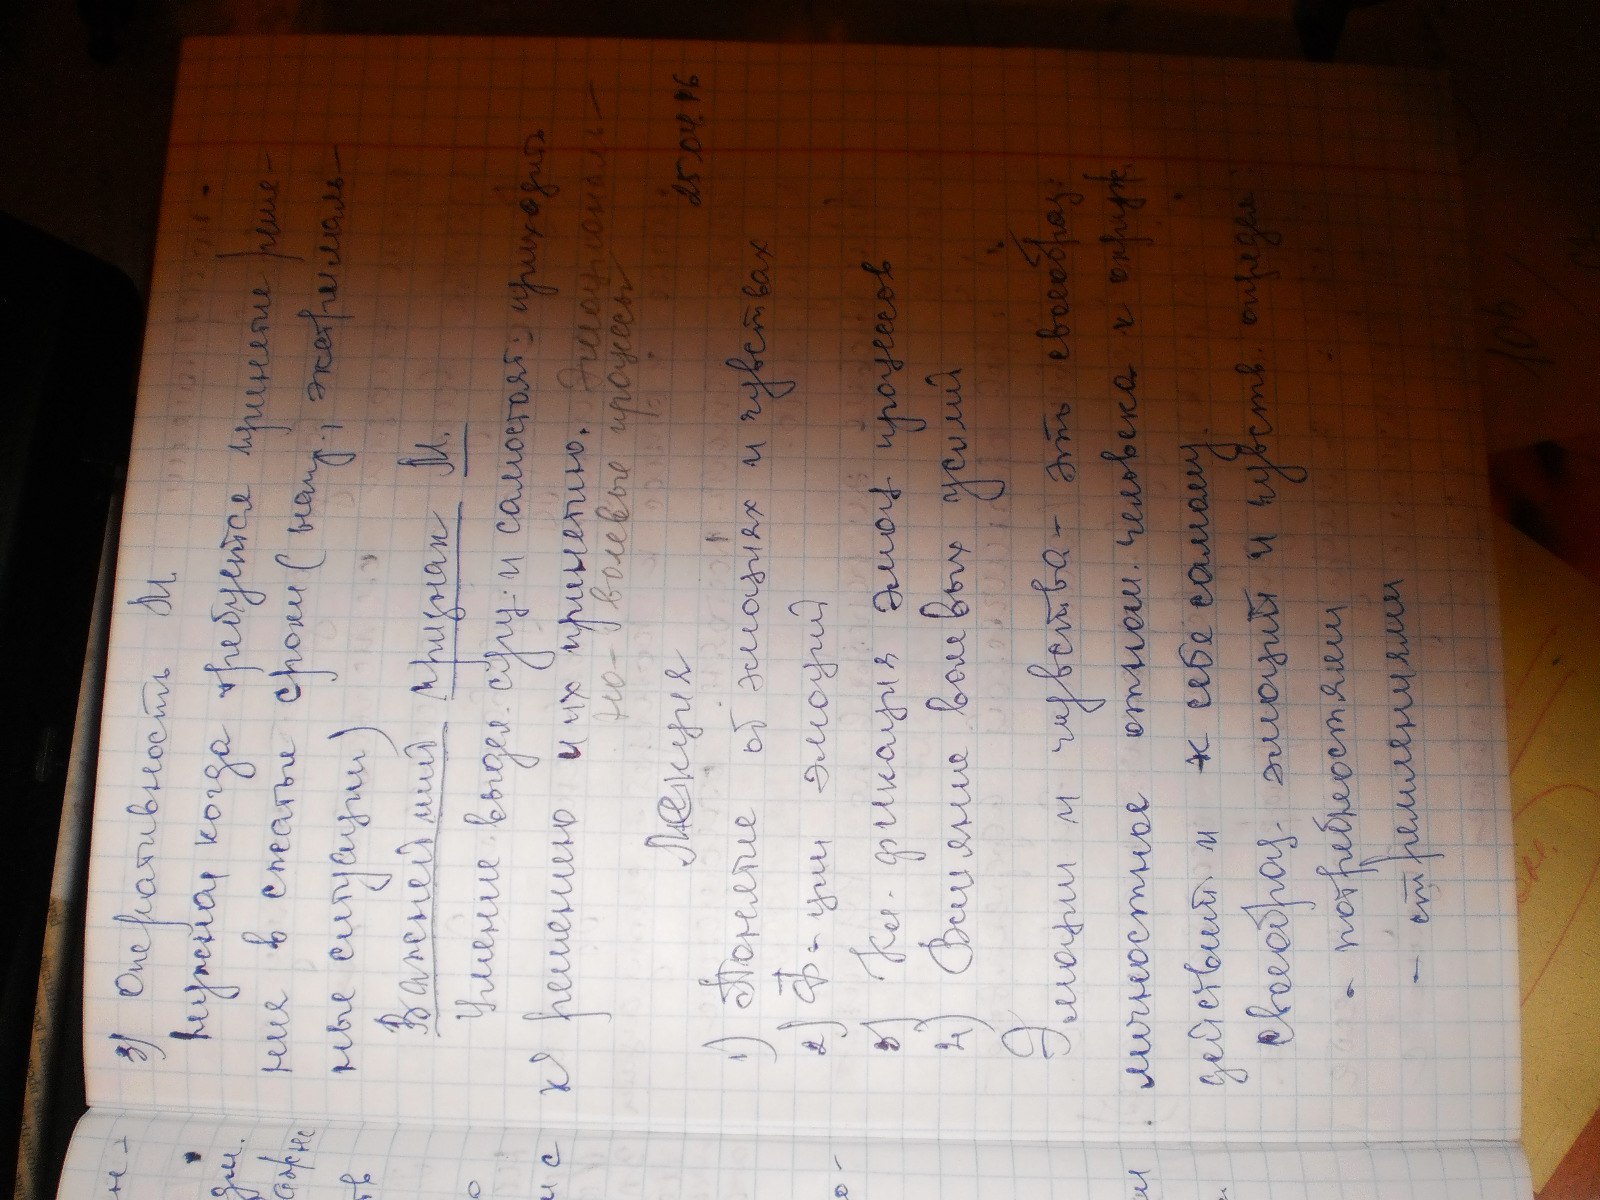 3) Оперативность М.
нужна когда требуется принятие реше-
ния в сжатые сроки (напр., экстремаль-
ные ситуации)
Важнейший признак М.
Умение выдел. сущ. и самостоят. приходить
к решению и их принятию. Эмоциональ-
но-волевые процессы
Лекция 25 04 16
1) Понятие об эмоциях и чувствах
2) Ф-ции эмоций
3) Кл. фикация эмоц процессов
4) Влияние волевых усилий
Эмоции и чувства - это своеобраз.
личностное отнош. человека к окруж
действит и к себе самому.
Своеобраз. эмоций и чувств. опредл:
- потребностями
- стремлениями